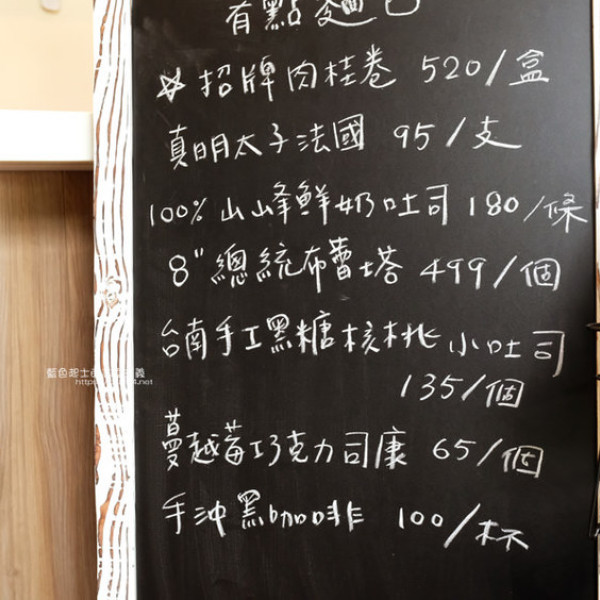 有點麵包
☆招牌肉桂卷 520/盒
真明太子法國 95/支
100% 山峰鮮奶吐司 180/條
8" 總統布蕾塔 499/個
台南手工黑糖核桃小吐司
135/個
蔓越莓巧克力司康 65/個
手沖黑咖啡 100/杯